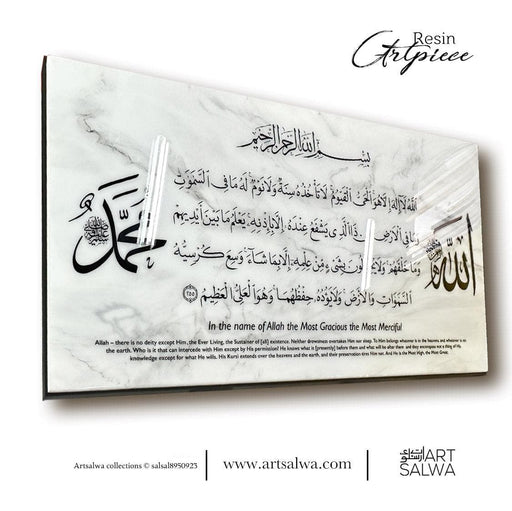 Resin
Artpiece
بسم الله الرحمن الرحيم
الله لا إله إلا هو الحي القيوم لا تأخذه سنة ولا نوم له ما في السموت
وما في الأرض من ذا الذي يشفع عنده إلا بإذنه يعلم ما بين أيديهم
وما خلفهم ولا يحيطون بشيء من علمه إلا بما شاء وسع كرسيه
السموات والأرض ولا يئوده حفظهما وهو العلي العظيم ٢٥٥
محمد
الله
In the name of Allah the Most Gracious the Most Merciful
Allah – there is no deity except Him, the Ever Living, the Sustainer of [all] existence. Neither drowsiness overtakes Him nor sleep. To Him belongs whatever is in the heavens and whatever is on
the earth. Who is it that can intercede with Him except by His permission? He knows what is [presently] before them and what will be after them and they encompass not a thing of His
knowledge except for what He wills. His Kursi extends over the heavens and the earth, and their preservation tires Him not. And He is the Most High, the Most Great.
Artsalwa collections © salsal8950923
www.artsalwa.com
ART
SALWA